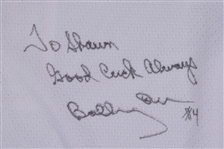 To Shawn
Good Luck Always
Bobby Orr
#4